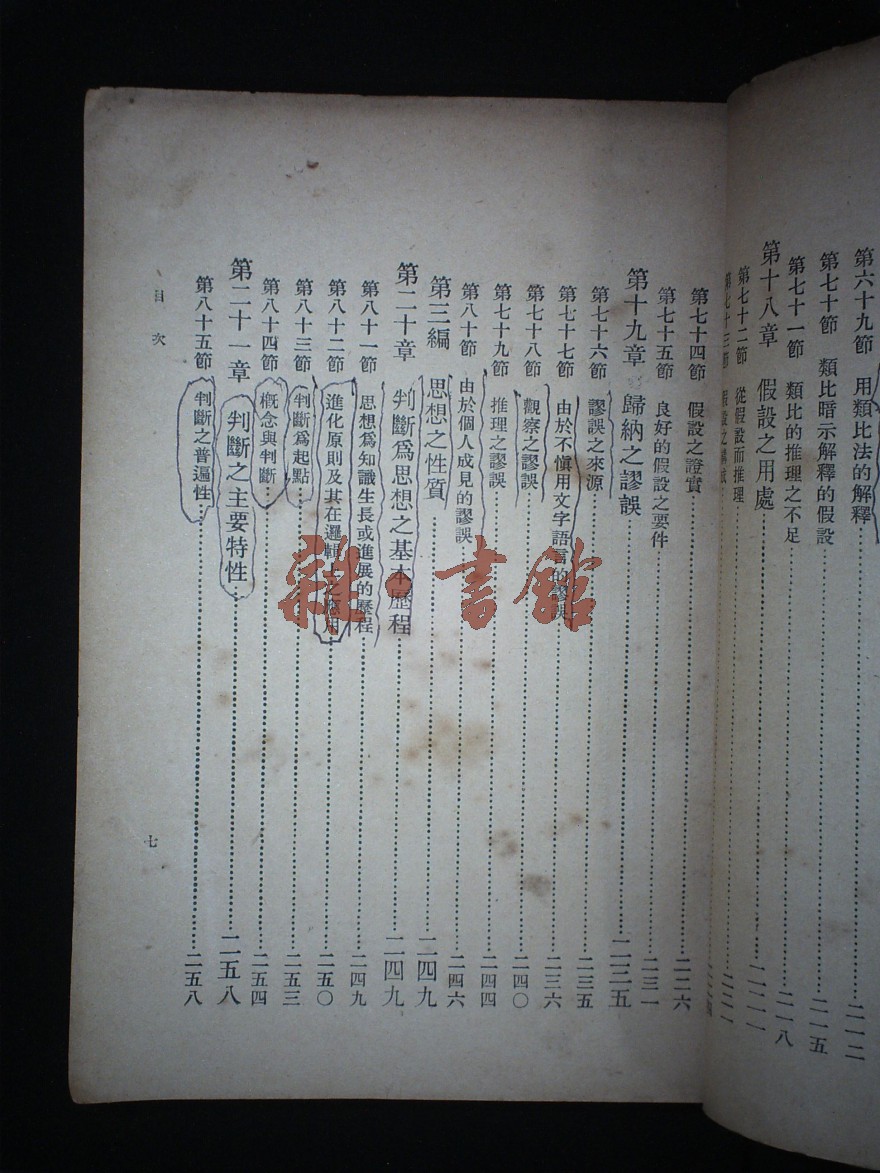 第六十九節 用類比法的解釋……二一二
第七十節 類比暗示解釋的假設……二一五
第七十一節 類比的推理之不足……二一八
第十八章 假設之用處……二二一
第七十二節 從假設而推理……二二一
第七十三節 假設之構成……
第七十四節 假設之證實……二二六
第七十五節 良好的假設之要件……二三一
第十九章 歸納之謬誤……二三五
第七十六節 謬誤之來源……二三五
第七十七節 由於不愼用文字語言的謬誤……二三六
第七十八節 觀察之謬誤……二四〇
第七十九節 推理之謬誤……二四四
第八十節 由於個人成見的謬誤……二四六
第三編 思想之性質……二四九
第二十章 判斷爲思想之基本歷程……二四九
第八十一節 思想爲知識生長或進展的歷程……二四九
第八十二節 進化原則及其在邏輯上之應用……二五〇
第八十三節 判斷爲起點……二五三
第八十四節 概念與判斷……二五四
第二十一章 判斷之主要特性……二五八
第八十五節 判斷之普遍性……二五八
目次
七
雜·書館